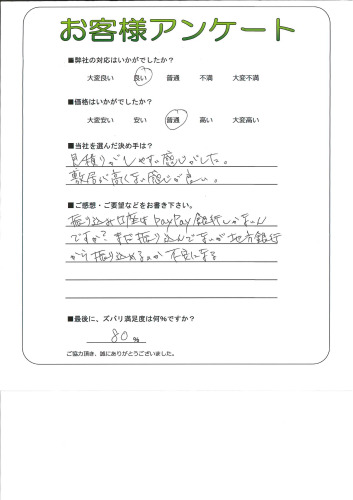 お客様アンケート
■弊社の対応はいかがでしたか?
大変良い 良い 普通 不満 大変不満
■価格はいかがでしたか?
大変安い 安い 普通 高い 大変高い
■当社を選んだ決め手は?
見積りがしやすい感じがした。
敷居が高くない感じが良い。
■ご感想・ご要望などをお書き下さい。
振り込み口座はPayPay銀行しかないん
ですか?まだ振り込んでないが地方銀行
から振り込めるのか不安になる
■最後に、ズバリ満足度は何%ですか?
80 %
ご協力頂き、誠にありがとうございました。